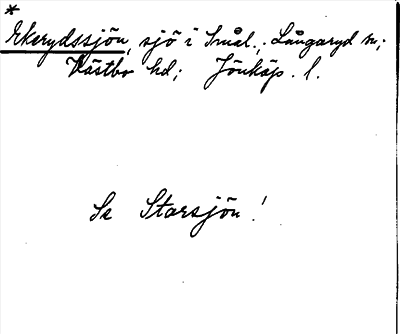 *
Ekerydssjön, sjö i Smål.; Långaryd sn;
Västbo hd; Jönköp. l.
Se Storsjön!